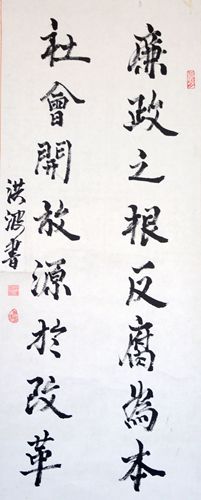 廉政之根反腐為本
社會開放源於改革
洪鴻書